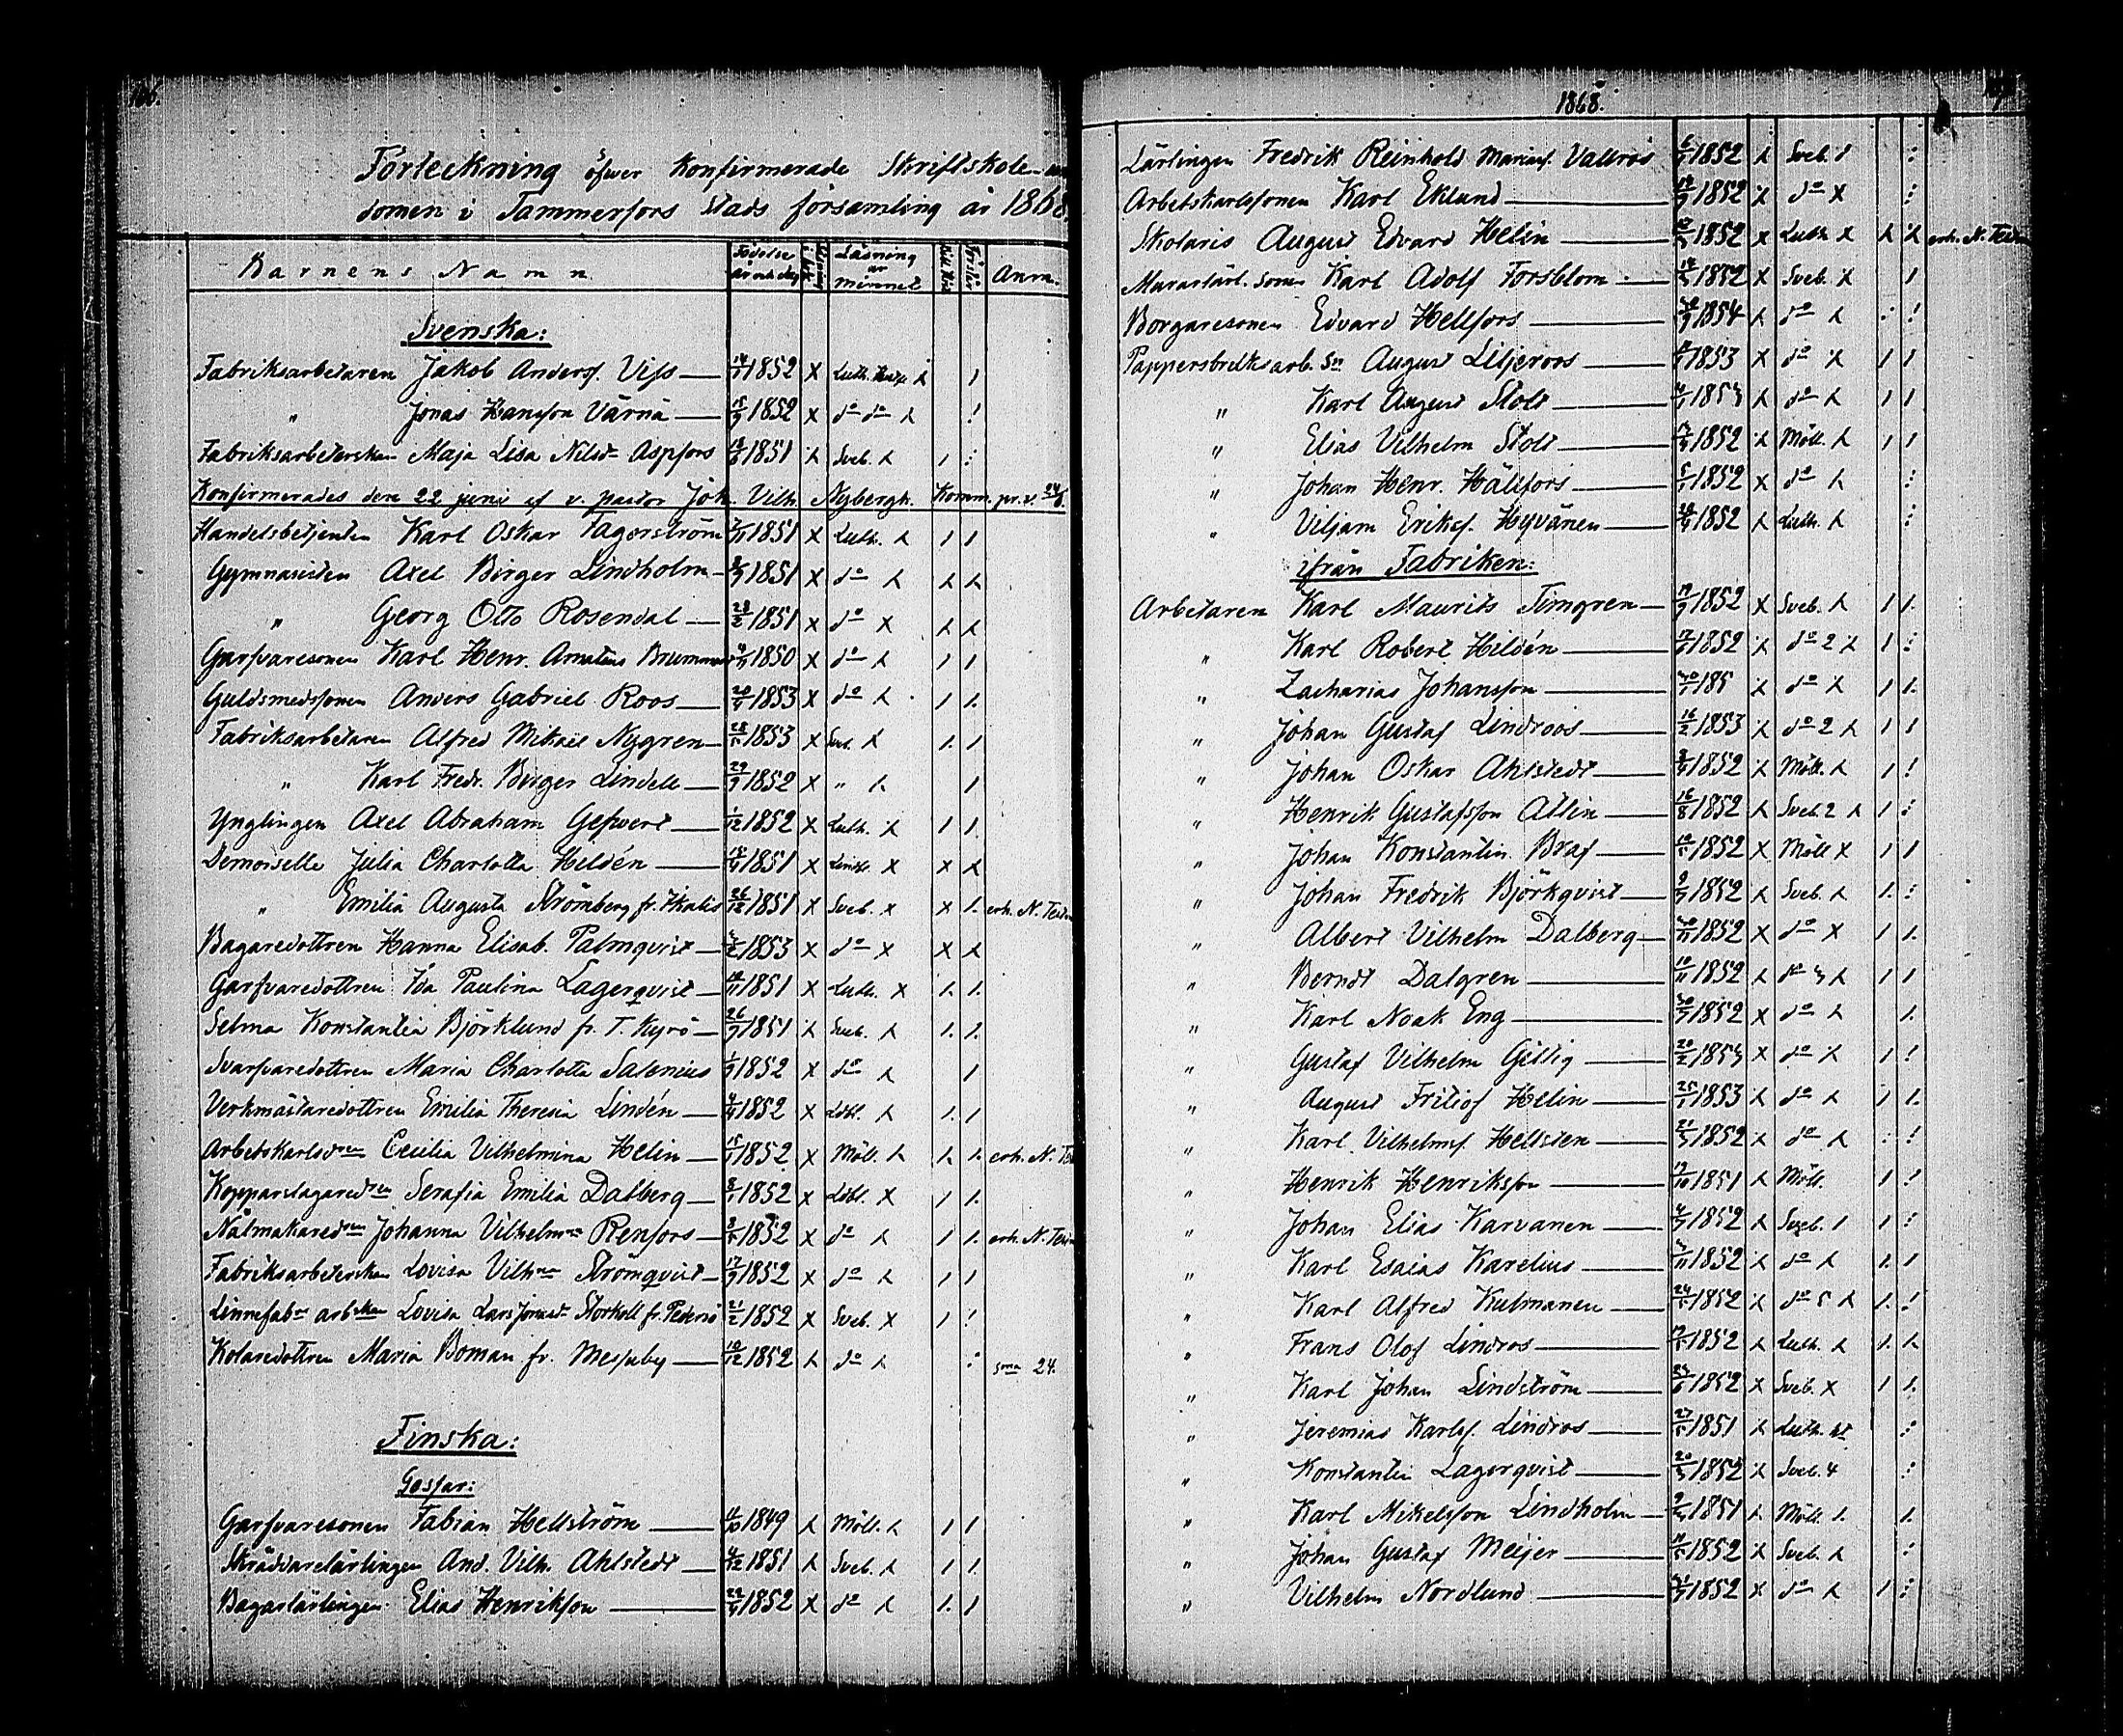 166.
Förteckning öfver Konfirmerade Skriftskole-
domen i Tammerfors Stads församling år 1868.
Barnens Namn Födelse år och dag Läsning i bok Läsning ur minnet Bibl. Hist. Förstår Anm.
Svenska:
Fabriksarbetaren Jakob Andersf. Viss 1852 x Luth.
" Jonas Hansson Värnä 15/9 1852 x do do
Fabriksarbeterskan Maja Lisa Nilsdr Aspfors 1851 Sveb.
Konfirmerades den 22 juni af v. pastor Joh. Vilh. Nybergh. Komm. pr. v. 24/6.
Handelsbetjenten Karl Oskar Fagerström 1851 x Luth.
Gymnasisten Axel Birger Lindholm 1851 x do
" Georg Otto Rosendal 28/2 1851 x do x
Garfvaresonen Karl Henr. Amatus 1850 x do
Guldsmedssonen Anders Gabriel Roos 1853 x do
Fabriksarbetaren Alfred Mikael Nygren 1853 x Sveb.
" Karl Fredr. Birger Lindell 29/9 1852 x "
Ynglingen Axel Abraham Gefwert 1/12 1852 x Luth.
Demoiselle Julia Charlotta Heldén 1851 x x x
" Emilia Augusta Strömberg fr. Ikalis 26/12 1851 x Sveb. x x erh. N. Testm
Bagaredottren Hanna Elisab. Palmqvist 1853 x do x x
Garfvaredottren Ida Paulina Lagerqvist 1851 x Luth. x
Selma Konstantia Björklund fr. T. Kyrö 26/9 1851 Sveb.
Svarfvaredottren Maria Charlotta Salenius 1/9 1852 x do
Verkmästaredottren Emilia Theresia Lindén 1852 x Ldbl.
Arbetskarlsdren Cecilia Vilhelmina Helin 1852 x Möll. erh. N. Tes
Kopparslagaredren Serafia Emilia Dalberg 1852 x Ldbl. x
Nålmakaredren Johanna Vilhelmna Renfors 1852 x do erh. N. Testm
Fabriksarbeterskan Lovisa Vilhna Strömqvist 17/9 1852 x do
Linnefabrs arbskan Lovisa Lars Jonasdr Storkell fr. Pedersö 21/2 1852 x Sveb. x
Kolaredottren Maria Boman fr. Messuby 10/12 1852 do sma 24.
Finska:
Gossar:
Garfvaresonen Fabian Hellström 1849 Möll.
Skräddarelärlingen And. Vilh. Ahlstedt 4/12 1851 Sveb.
Bagarlärlingen Elias Henriksson 1852 x do
1868.
Lärlingen Fredrik Reinhold Mariasf. Vallros 1852 Sveb.
Arbetskarlssonen Karl Eklund 1852 x do x
Skolaris August Edvard Helin 1852 x Luth. x erh. N. Testm
Murarlärl. sonen Karl Adolf Forsblom 1852 x Sveb. x
Borgaresonen Edvard Hellfors 1854 do
Pappersbruksarb. Sn August Liljeroos 1853 x do
" Karl August Stolt 1853 do
" Elias Vilhelm Stolt 1852 Möll.
" Johan Henr. Hällfors 1852 x do
" Viljam Eriksf. Hyvänen 1852 Luth.
ifrån Fabriken:
Arbetaren Karl Maurits Timgren 1852 x Sveb.
" Karl Robert Hildén 1852 do 2
" Zacharias Johansson 185 do
" Johan Gustaf Lindroos 16/2 1853 do 2
" Johan Oskar Ahlstedt 1852 Möll.
" Henrik Gustafsson Allin 16/8 1852 Sveb. 2
" Johan Konstantin Braf 1852 x Möll x
" Johan Fredrik Björkqvist 1852 Sveb.
" Albert Vilhelm Dalberg 1852 x do x
" Berndt Dalgren 10/11 1852 do 3
" Karl Noak Eng 1852 x do
" Gustaf Vilhelm Gillig 20/2 1853 x do
" August Fritiof Helin 25/1 1853 do
" Karl Vilhelmsf. Hellsten 1852 do
" Henrik Henriksson 1851 Möll.
" Johan Elias Karvanen 1852 Sveb.
" Karl Esaias Karelius 1852 do
" Karl Alfred Kulmanen 1852 do 5
" Frans Olof Lindros 1852 Luth.
" Karl Johan Lindström 1852 x Sveb. x
" Jeremias Karlsf. Lindros 1851 Luth.
" Konstantin Lagerqvist 1852 Sveb. 4
" Karl Mikelsson Lindholm 1851 Möll.
" Johan Gustaf Meijer 1852 Sveb.
" Vilhelm Nordlund 1852 x do